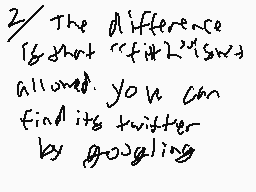 2/ The difference
is that "fitz" isn't
allowed. you can
find its twitter
by googling